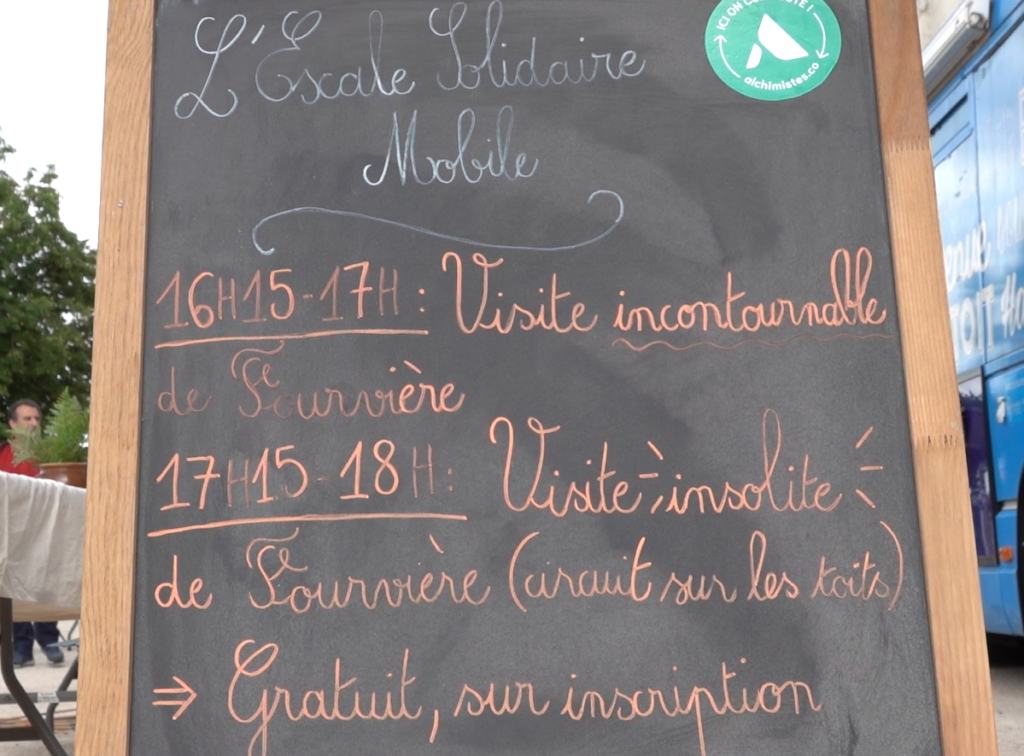 L'Escale Solidaire
Mobile
ICI ON
alchimistes.co
16H15-17H : Visite incontournable
de Fourvière
17H15-18H : Visite insolite
de Fourvière (circuit sur les toits)
⇒ Gratuit, sur inscription
TOIT